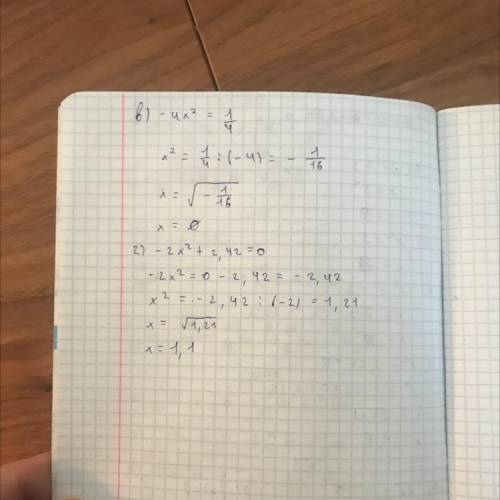 в) -4x² = 1/4
x² = 1/4 : (-4) = - 1/16
x = √(- 1/16)
x = ∅
г) -2x² + 2,42 = 0
-2x² = 0 - 2,42 = - 2,42
x² = - 2,42 : (-2) = 1,21
x = √1,21
x = 1,1